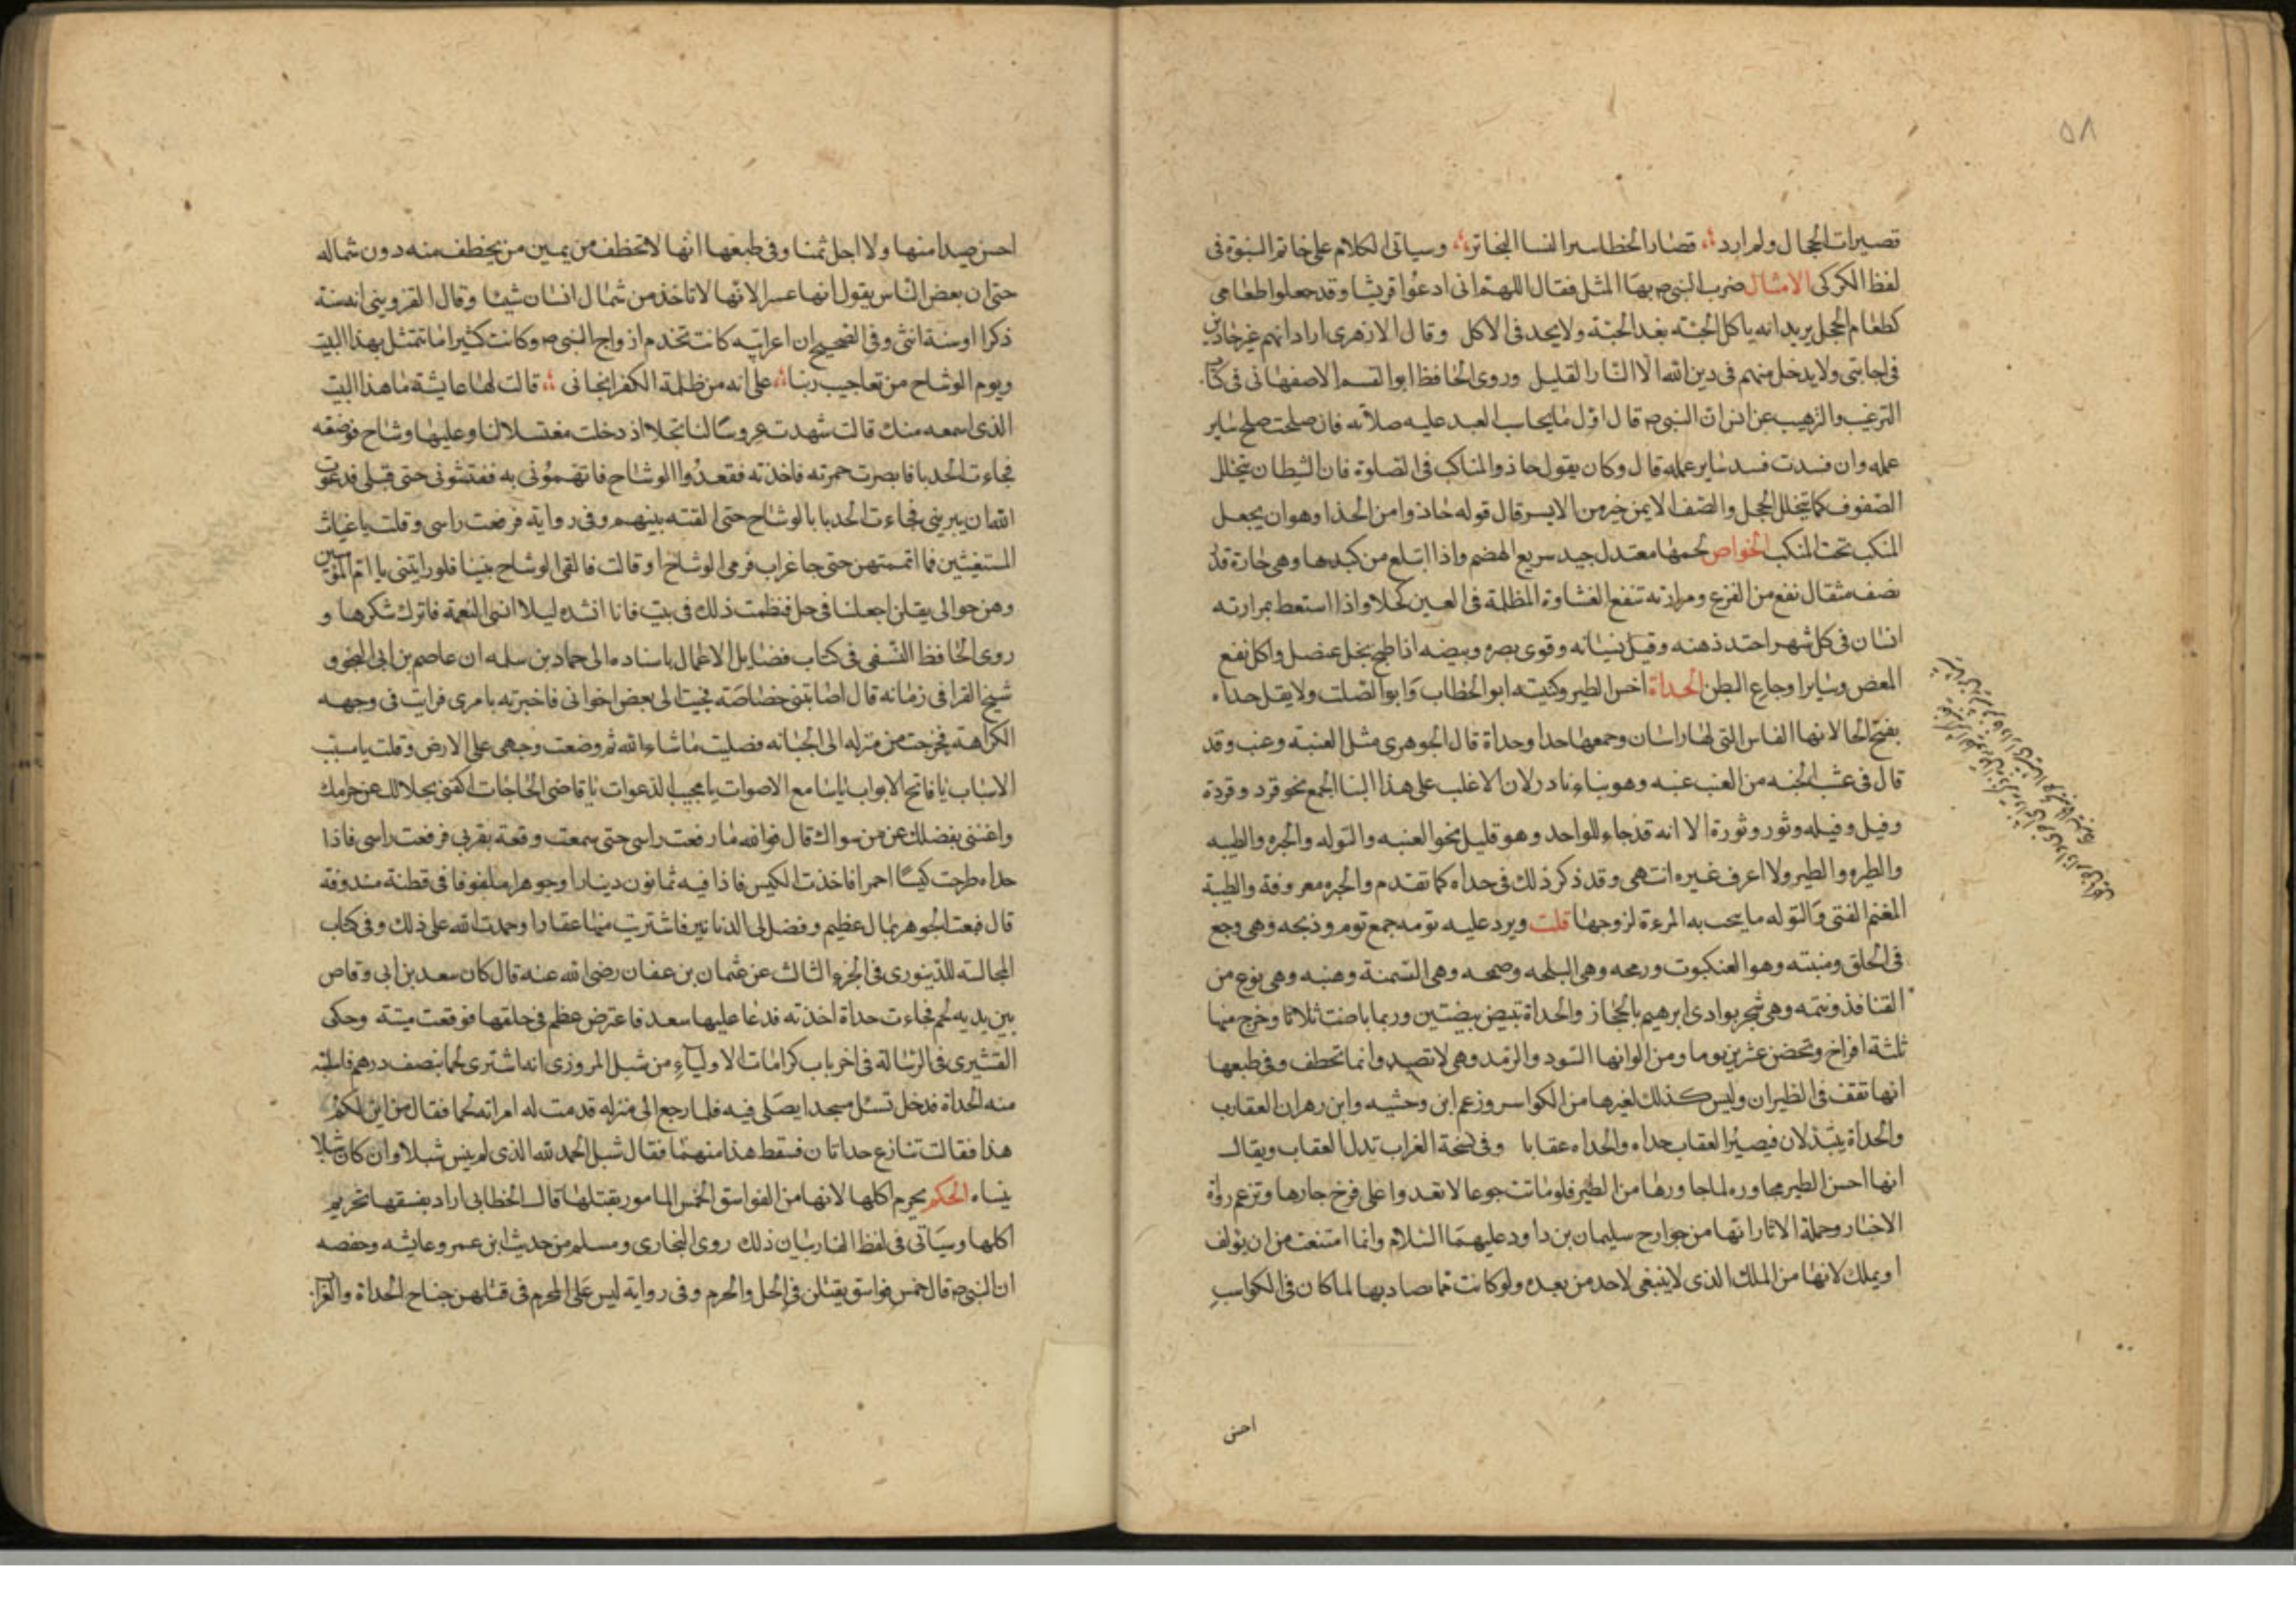 ٥٨
قصيرات الحجال ولم ارد قصار الخطا سر النسا البخاتر وسياتى الكلام على خاتم النبوة فى
لفظ الكركى الامثال ضرب النبى ص بها المثل فقال اللهم انى ادعوا قريشا وقد جعلوا طعامى
كطعام الحجل يريد انه ياكل الحبة بعد الحبة ولا يجد فى الاكل وقال الازهرى اراد انهم غير جادين
فى اجابتى ولا يدخل منهم فى دين الله الا النار القليل وروى الحافظ ابو القسم الاصفهانى فى كتاب
الترغيب والترهيب عن انس ان النبى ص قال اول ما يحاسب العبد عليه صلاته فان صلحت صلح ساير
عمله وان فسدت فسد ساير عمله قال وكان يقول حاذوا المناكب فى الصلوة فان الشيطان يتخلل
الصفوف كما يتخلل الحجل والصف الايمن خير من الايسر قال قوله حاذوا من الحذا وهو ان يجعل
المنكب تحت المنكب الخواص لحمها معتدل جيد سريع الهضم واذا ابتلع من كبدها وهى حارة قدر
نصف مثقال نفع من الفزع ومرارته تنفع الغشاوة المظلمة فى العين كحلا واذا استعط بمرارته
انسان فى كل شهر احتد ذهنه وقيل نسيانه وقوى بصره وبيضه اذا طبخ بخل عنصل واكل نفع
المغص وساير اوجاع البطن الحداة اخس الطير وكنيته ابو الخطاب وابو الصلت ولا يقل حداه
بفتح الحا لانها الفاس التى لها راسان وجمعها حدا وحداة قال الجوهرى مثل العنبة وعنب وقد
قال فى عنب الحبه من العنب عنبه وهو بناء نادر لان الاغلب على هذا البنا الجمع نحو قرد وقردة
وفيل وفيله وثور وثورة الا انه قد جاء للواحد وهو قليل نحو العنبه والتوله والحبره والطيبه
والطيره والطير ولا اعرف غيره انتهى وقد ذكر ذلك فى حداه كما تقدم والحبره معروفة والطيبة
المغنم الفتى والتوله ما يحب به المرءة لزوجها قلت ويرد عليه تومه جمع توم وذبحه وهى وجع
فى الحلق ومنبته وهو العنكبوت ورمحه وهى البلحه وصمحه وهى السمنة وهنبه وهى نوع من
القنافذ ونتمه وهى شجر بوادى ابرهيم بالحجاز والحداة تبيض بيضتين وربما باضت ثلاثا وخرج منها
ثلثة افراخ وتحضن عشرين يوما ومن الوانها السود والرمد وهى لا تصيد وانما تخطف وفى طبعها
انها تقف فى الطيران وليس كذلك لغيرها من الكواسر وزعم ابن وحشيه وابن رهر ان العقاب
والحداة يتبدلان فيصير العقاب حداه والحداه عقابا وفى نسخة الغراب تدل العقاب ويقال
انها احسن الطير مجاوره لما جاورها من الطير فلو ماتت جوعا لا تعدوا على فرخ جارها وتزعم رواة
الاخبار وحملة الاثار انها من جوارح سليمان بن داود عليهما السلام وانما امتنعت من ان تولف
او يملك لانها من الملك الذى لا ينبغى لاحد من بعده ولو كانت مما صاد بها لما كان فى الكواسب
احسن
احسن صيدا منها ولا اجل ثمنا وفى طبعها انها لا تخطف من يمين من يخطف منه دون شماله
حتى ان بعض الناس يقول انها عسرا لانها لا تاخذ من شمال انسان شيئا وقال القزوينى انه سنة
ذكرا وسنة انثى وفى الصحيح ان اعرابيه كانت تخدم ازواج النبى ص وكانت كثيرا ما تتمثل بهذا البيت
ويوم الوشاح من تعاجيب ربنا على انه من ظلمة الكفر انجانى قالت لها عايشة ما هذا البيت
الذى اسمعه منك قالت شهدت عروسا لنا تجلا اذ دخلت مغتسلا لنا وعليها وشاح فوضعته
فجاءت الحديا فابصرت حمرته فاخذته ففقدوا الوشاح فاتهمونى به ففتشونى حتى قبلى فدعوت
الله ان يبرينى فجاءت الحديا بالوشاح حتى القته بينهم وفى رواية فرفعت راسى وقلت ياغياث
المستغيثين فما اتممتهن حتى جا غراب فرمى الوشاح او قالت فالقى الوشاح بيننا فلو رايتنى يا ام المؤمنين
وهن حوالى يقلن اجعلنا فى حل فنظمت ذلك فى بيت فانا انشده ليلا انسى النعمة فاترك شكرها و
روى الحافظ النسفى فى كتاب فضايل الاعمال باسناده الى حماد بن سلمه ان عاصم بن ابى النجود
شيخ القرا فى زمانه قال اصابتنى خصاصة فجئت الى بعض اخوانى فاخبرته بامرى فرايت فى وجهه
الكراهة فخرجت من منزله الى الجبانه فصليت ما شاء الله ثم وضعت وجهى على الارض وقلت يا مسبب
الاسباب يا فاتح الابواب يا سامع الاصوات يا مجيب الدعوات يا قاضى الحاجات اكفنى بحلالك عن حرامك
واغننى بفضلك عن من سواك قال فوالله ما رفعت راسى حتى سمعت وقعة بقربى فرفعت راسى فاذا
حداه طرحت كيسا احمر فاخذت الكيس فاذا فيه ثمانون دينارا وجوهرا ملفوفا فى قطنة مندوفة
قال فبعت الجوهر بمال عظيم وفضل لى الدنانير فاشتريت منها عقارا وحمدت الله على ذلك وفى كتاب
المجالسة للدينورى فى الجزء الثالث عن عثمان بن عفان رضى الله عنه قال كان سعد بن ابى وقاص
بين يديه لحم فجاءت حداة اخذته فدعا عليها سعد فاعترض عظم فى حلقها فوقعت ميتة وحكى
القشيرى فى الرسالة فى اخر باب كرامات الاولياء من شبل المروزى انه اشترى لحما بنصف درهم فاستلبته
منه الحداة فدخل تسئل مسجدا يصلى فيه فلما رجع الى منزله قدمت له امراته لحما فقال من اين لكم
هذا فقالت تنازع حداتان فسقط هذا منهما فقال شبل الحمد لله الذى لم ينس شبلا وان كان شبلا
ينساه الحكم يحرم اكلها لانها من الفواسق الخمس المامور بقتلها قال الخطابى اراد بفسقها تحريم
اكلها وسياتى فى لفظ الفار بيان ذلك روى البخارى ومسلم من حديث ابن عمر وعايشه وحفصه
ان النبى ص قال خمس فواسق يقتلن فى الحل والحرم وفى رواية ليس على المحرم فى قتلهن جناح الحداة والغراب